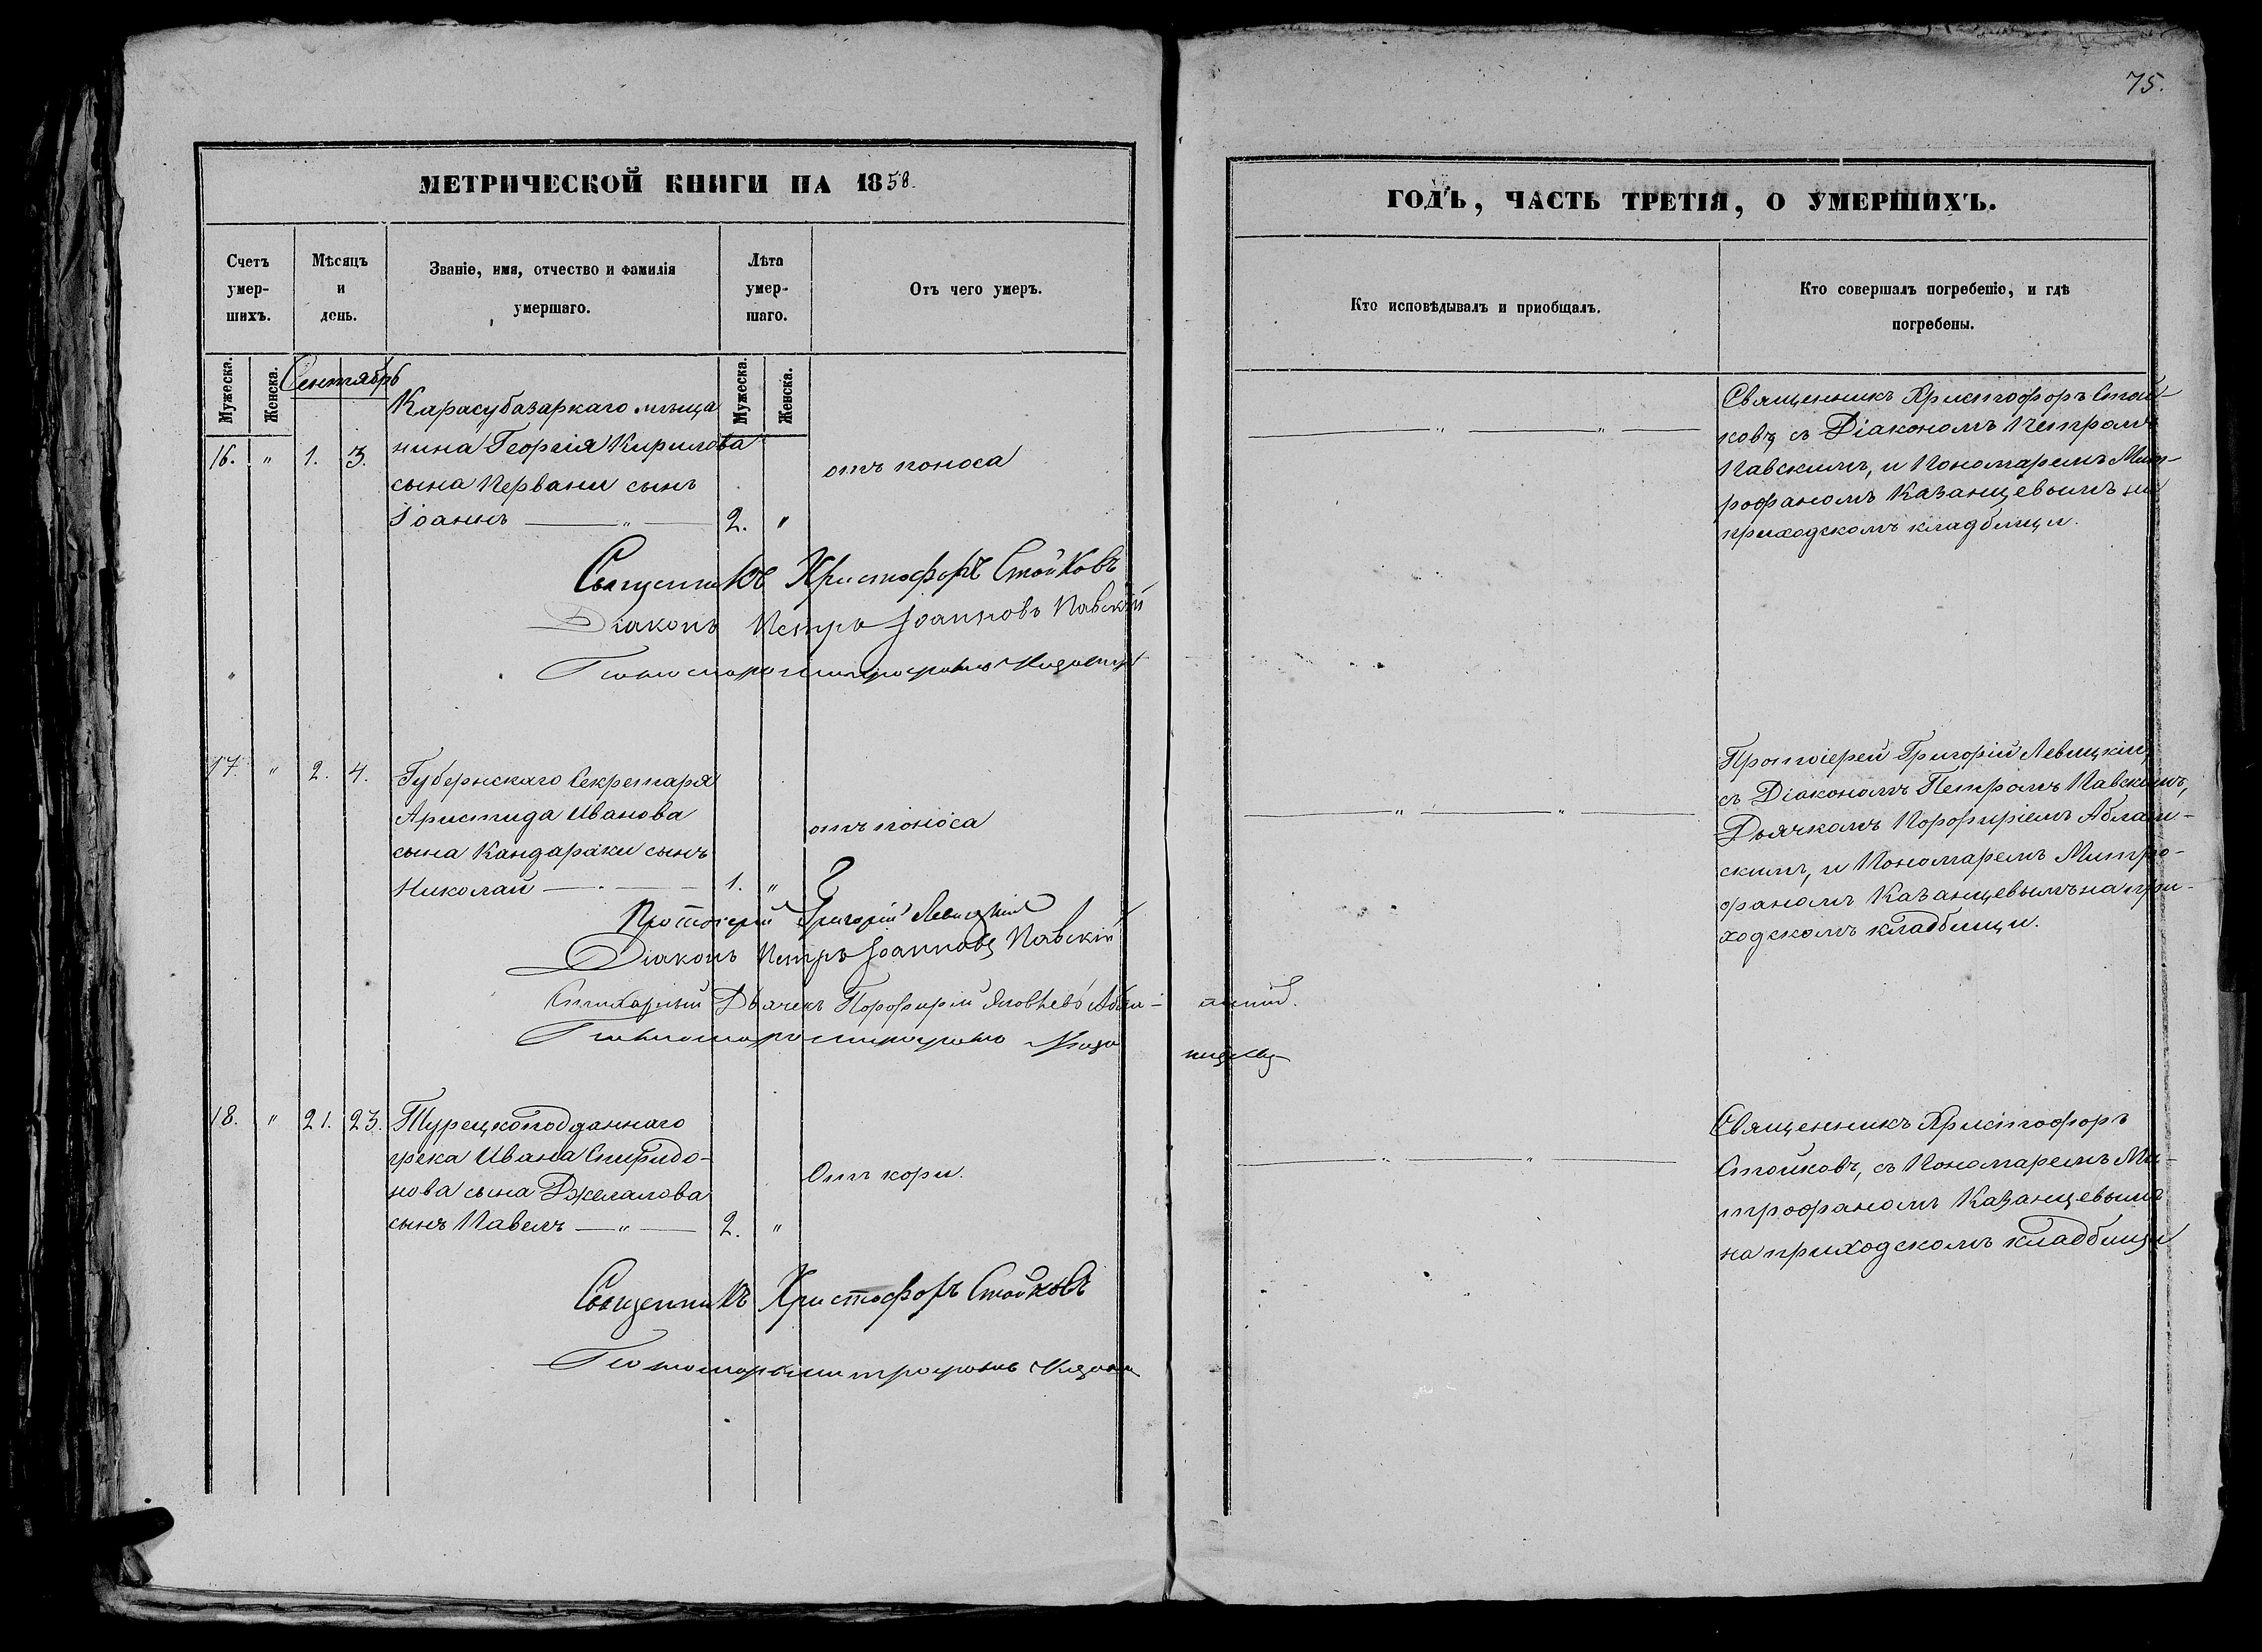 75.
МЕТРИЧЕСКОЙ КНИГИ НА 1858.
Счетъ умер- шихъ.
Мѣсяцъ и день.
Званіе, имя, отчество и фамилія умершаго.
Лѣта умер- шаго.
Отъ чего умеръ.
Мужеска. Женска.
Сентябрь
Мужеска. Женска.
Карасубазаркаго мѣща
16. " 1. 3. нина Георгія Кирилова
отъ поноса
сына Первани сынъ
Іоаннъ — " — 2. "
Священникъ Христофоръ Стойковъ
Діаконъ Петръ Іоанновъ Павскій
Пономарь Митрофанъ
17. " 2. 4. Губернскаго Секретаря
Аристида Иванова
отъ поноса
сына Кандараки сынъ
Николай — 1. "
Протоіерей Григорій Левицкій
Діаконъ Петръ Іоанновъ Павскій
Стихарный Дьячекъ Порфирій Яковлевъ
Пономарь Митрофанъ
18. " 21. 23. Турецкоподданнаго
грека Ивана Спиридо-
Отъ кори.
нова сына Джелалова
сынъ Павелъ — " — 2. "
Священникъ Христофоръ Стойковъ
Пономарь Митрофанъ
ГОДЪ, ЧАСТЬ ТРЕТІЯ, О УМЕРШИХЪ.
Кто исповѣдывалъ и приобщалъ.
Кто совершалъ погребеніе, и гдѣ
погребены.
Священникъ Христофоръ Стой-
ковъ съ Діакономъ Петромъ
Павскимъ, и Пономаремъ Мит-
рофаномъ Казанцевымъ на
приходскомъ кладбищи.
Протоіерей Григорій Левицкій,
съ Діакономъ Петромъ Павскимъ,
Дьячкомъ Порфиріемъ
скимъ, и Пономаремъ Митро-
фаномъ Казанцевымъ на при-
ходскомъ кладбищи.
Священникъ Христофоръ
Стойковъ, съ Пономаремъ Ми-
трофаномъ Казанцевымъ
на приходскомъ кладбищи